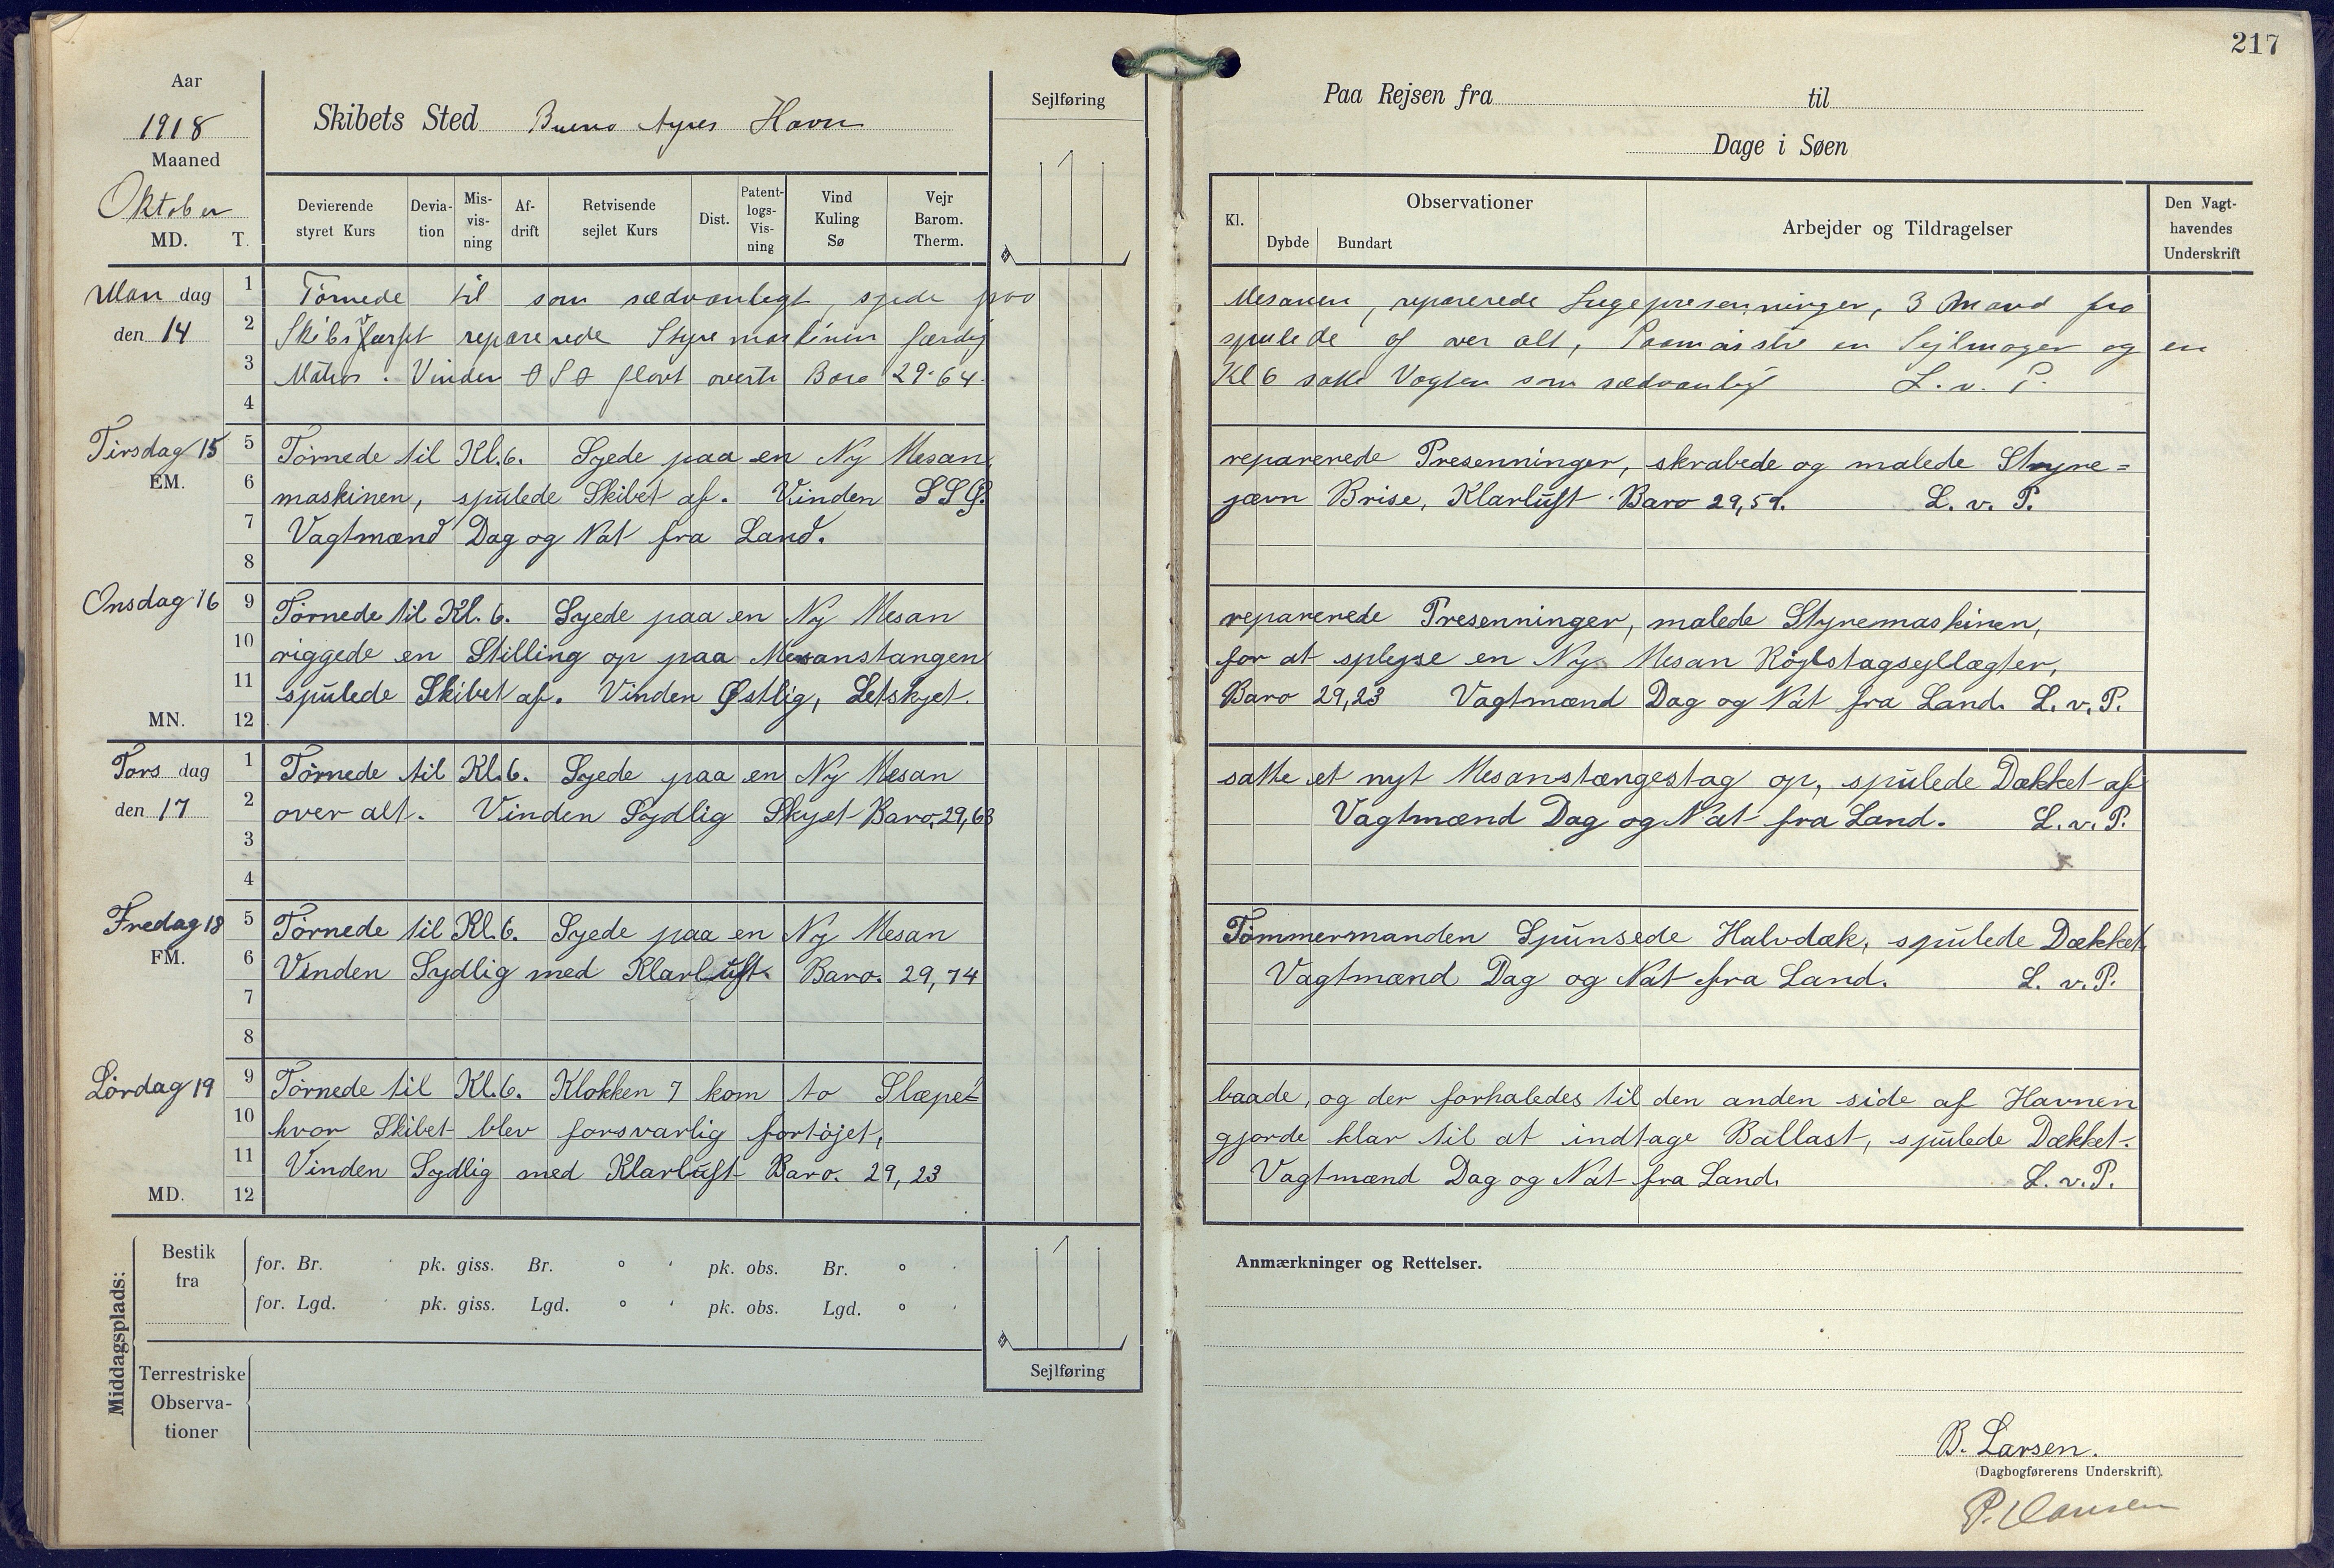 217
Aar
1918
Maaned
Oktober
MD. T.
Skibets Sted Bueno Ayres Havn
Sejlføring
Paa Rejsen fra til
Dage i Søen
Devierende styret Kurs
Devia-tion
Mis-vis-ning
Af-drift
Retvisende sejlet Kurs
Dist.
Patent-logs-Vis-ning
Vind Kuling Sø
Vejr Barom. Therm.
Kl.
Observationer
Dybde Bundart
Arbejder og Tildragelser
Den Vagt-havendes Underskrift
Mandag den 14
1 Tørnede til som sædvanligt, syede paa
Mesanen, reparerede Lugepresenninger, 3 Mand fra
2 Skibsværfet reparerede Styremaskinen færdig
spulede af over alt, en Sejlmager og en
3 Matros. Vinden Ø S Ø flovt Baro 29.64.
Kl 6 satte Vagten som sædvanligt L. v. P.
4
Tirsdag 15
EM.
5 Tørnede til Kl. 6. Syede paa en Ny Mesan,
reparerede Presenninger, skrabede og malede Styre=
6 maskinen, spulede Skibet af. Vinden SSØ.
jævn Brise, Klarluft. Baro 29,59. L. v. P.
7 Vagtmænd Dag og Nat fra Land.
8
Onsdag 16
9 Tørnede til Kl. 6. Syede paa en Ny Mesan
reparerede Presenninger, malede Styremaskinen,
10 riggede en Stilling op paa Mesanstangen
for at splejse en Ny Mesan Røjlstagsejllægter,
11 spulede Skibet af. Vinden Østlig, Letskyet.
Baro 29,23 Vagtmænd Dag og Nat fra Land. L. v. P.
MN. 12
Torsdag den 17
1 Tørnede til Kl. 6. Syede paa en Ny Mesan
satte et nyt Mesanstængestag op, spulede Dækket af
2 over alt. Vinden Sydlig Skyet Baro. 29,63
Vagtmænd Dag og Nat fra Land. L. v. P.
3
4
Fredag 18
FM.
5 Tørnede til Kl. 6. Syede paa en Ny Mesan
Tømmermanden Spunsede Halvdæk, spulede Dækket
6 Vinden Sydlig med Klarluft. Baro. 29,74
Vagtmænd Dag og Nat fra Land. L. v. P.
7
8
Lørdag 19
9 Tørnede til Kl. 6. Klokken 7 kom to Slæpe=
baade, og der forhaledes til den anden side af Havnen
10 hvor Skibet blev forsvarlig fortøjet,
gjorde klar til at indtage Ballast, spulede Dækket.
11 Vinden Sydlig med Klarluft Baro. 29,23
Vagtmænd Dag og Nat fra Land. L. v. P.
MD. 12
Middagsplads:
Bestik fra
for. Br. pk. giss. Br. ° ' pk. obs. Br. ° '
for. Lgd. pk. giss. Lgd. ° ' pk. obs. Lgd. ° '
Terrestriske Observa-tioner
Sejlføring
Anmærkninger og Rettelser.
B. Larsen.
(Dagbogførerens Underskrift).
P. Hansen